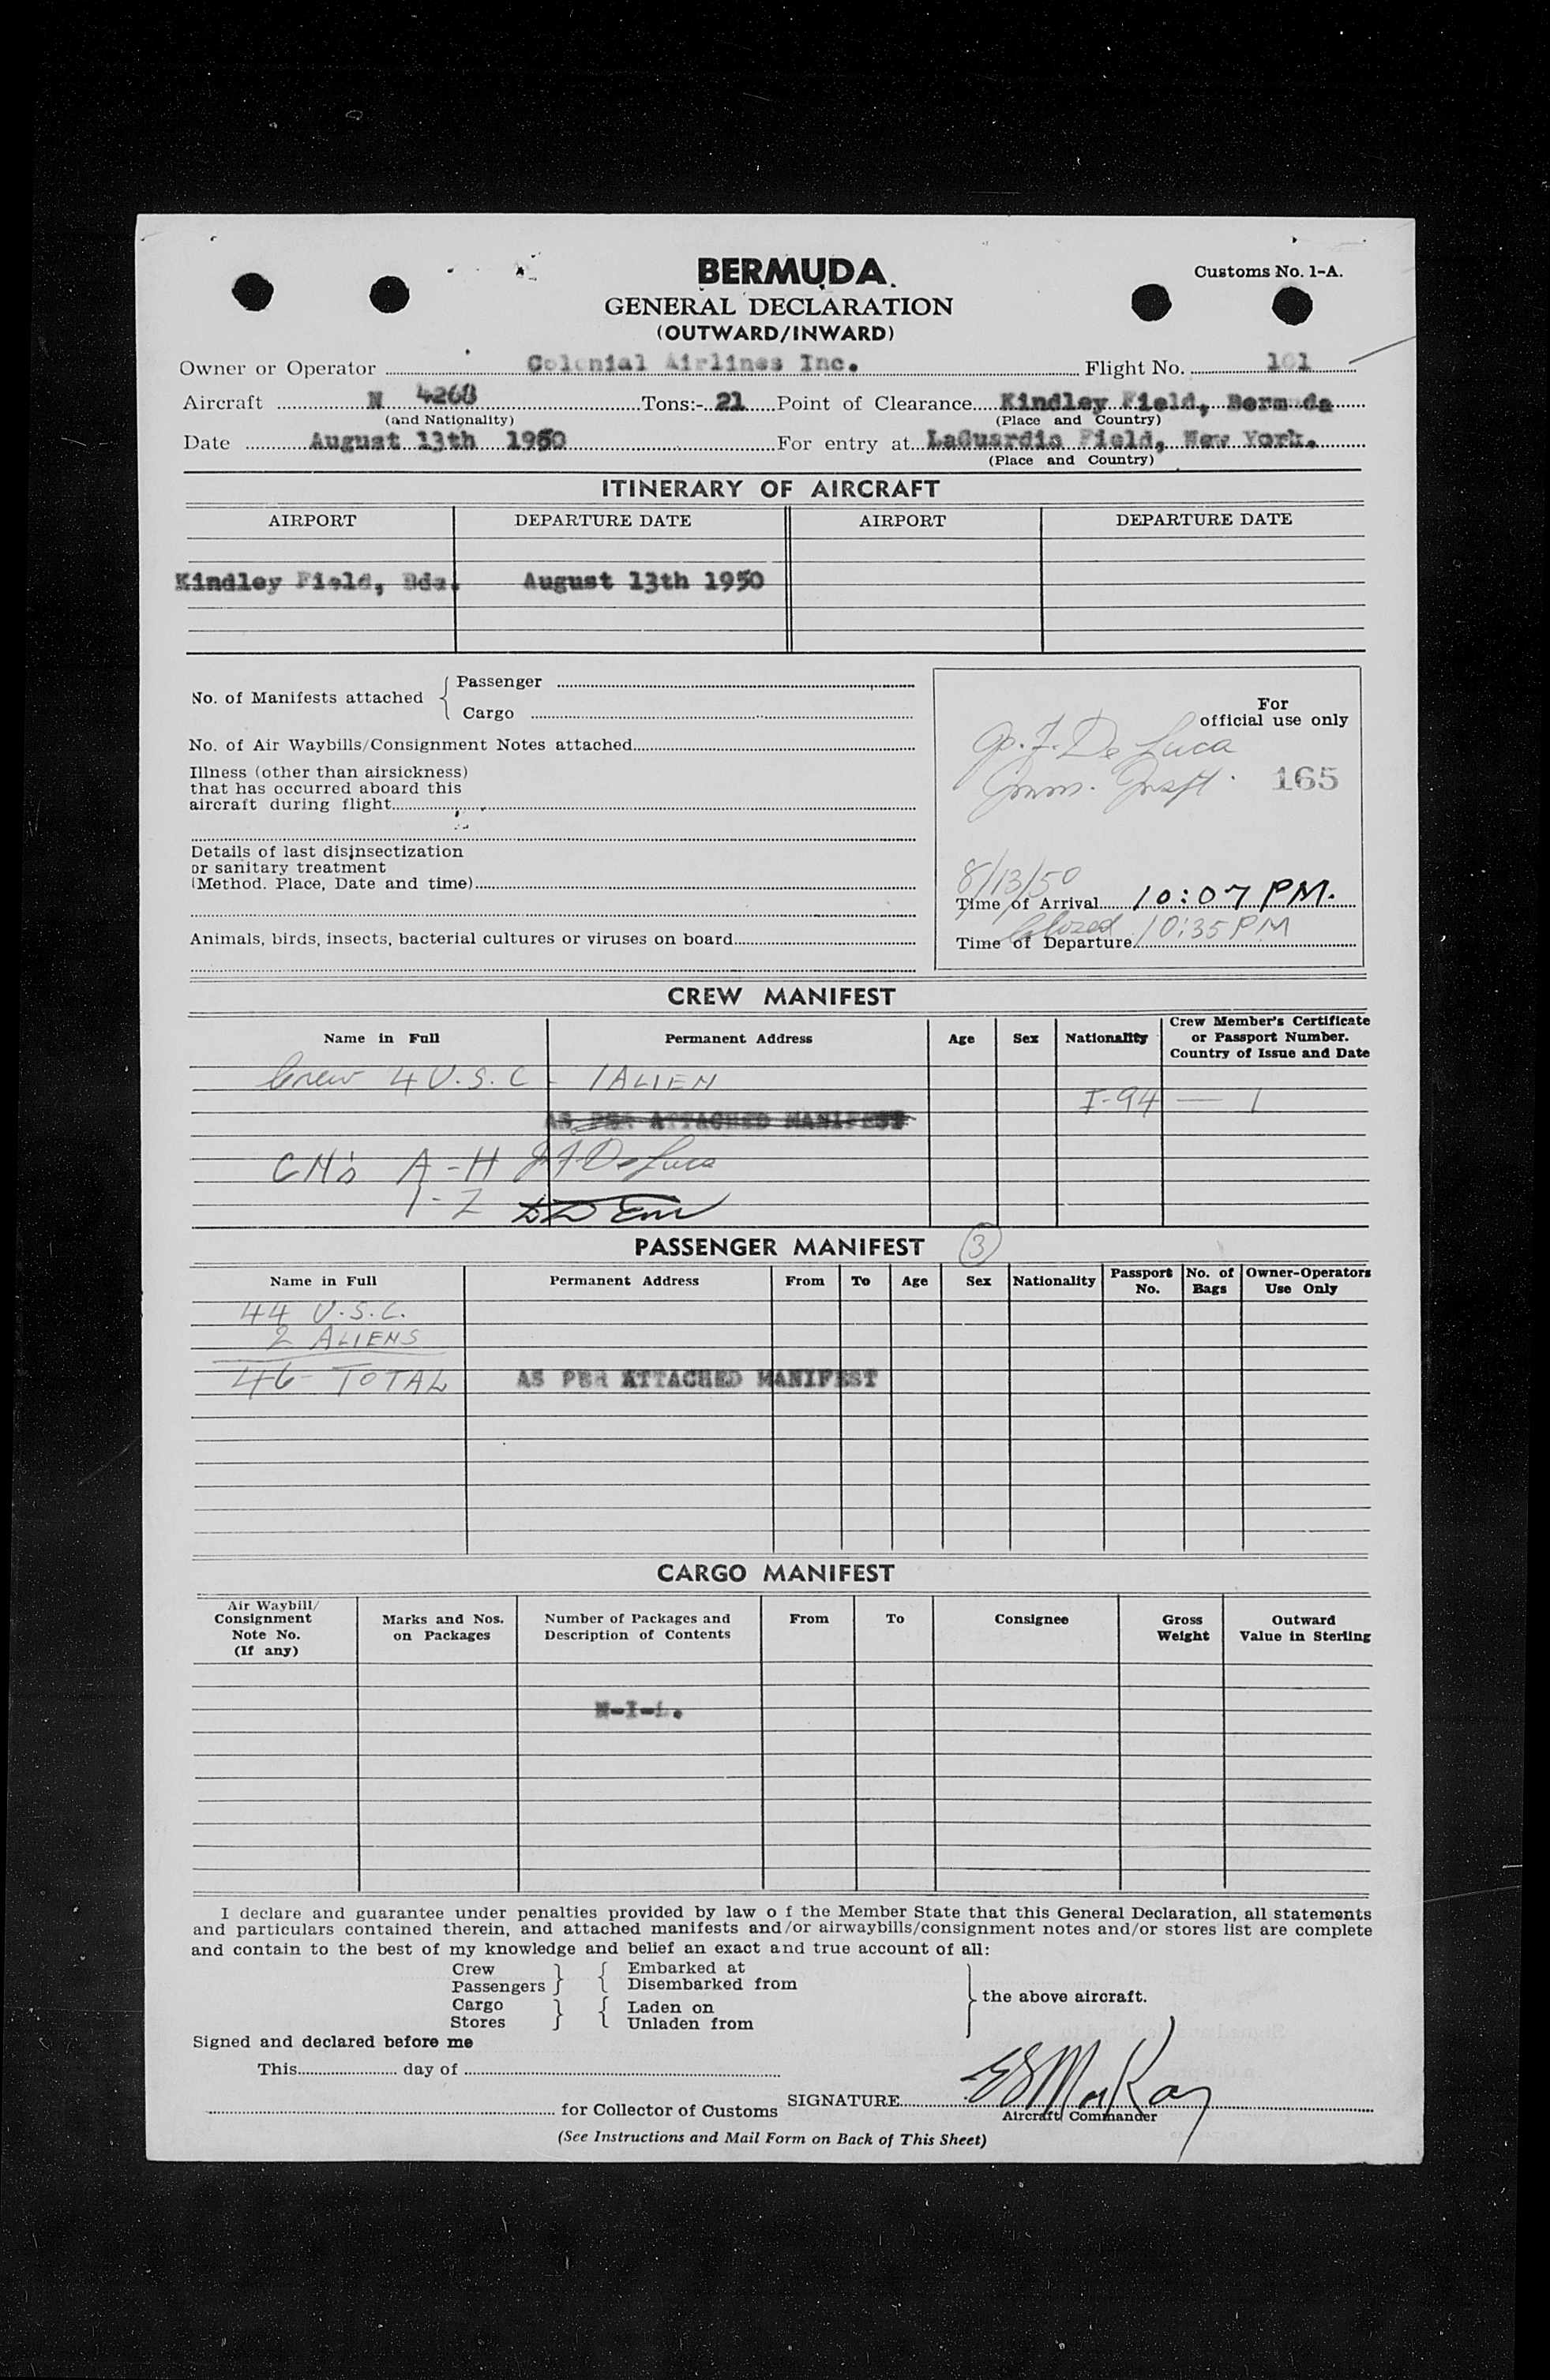 BERMUDA.
Customs No. 1-A.
GENERAL DECLARATION
(OUTWARD/INWARD)
Owner or Operator Colonial Airlines Inc. Flight No. 101
Aircraft N 4268 Tons:- 21 Point of Clearance Kindley Field, Bermuda
(and Nationality) (Place and Country)
Date August 13th 1950 For entry at LaGuardia Field, New York.
(Place and Country)
ITINERARY OF AIRCRAFT
AIRPORT DEPARTURE DATE AIRPORT DEPARTURE DATE
Kindley Field, Bda. August 13th 1950
No. of Manifests attached { Passenger
Cargo
For
official use only
No. of Air Waybills/Consignment Notes attached
De Luca
Imm. Inspt. 165
Illness (other than airsickness)
that has occurred aboard this
aircraft during flight
Details of last disinsectization
or sanitary treatment
(Method. Place, Date and time)
8/13/50
Time of Arrival 10:07 PM.
Closed 10:35 PM
Time of Departure
Animals, birds, insects, bacterial cultures or viruses on board
CREW MANIFEST
Name in Full Permanent Address Age Sex Nationality Crew Member's Certificate
or Passport Number.
Country of Issue and Date
Crew 4 U.S.C. 1 ALIEN
I-94 — 1
AS PER ATTACHED MANIFEST
A-H De Luca
I-Z
PASSENGER MANIFEST 3
Name in Full Permanent Address From To Age Sex Nationality Passport No. No. of Bags Owner-Operators Use Only
44 U.S.C.
2 ALIENS
46 - TOTAL AS PER ATTACHED MANIFEST
CARGO MANIFEST
Air Waybill/
Consignment
Note No.
(If any)
Marks and Nos.
on Packages
Number of Packages and
Description of Contents
From To Consignee
Gross
Weight
Outward
Value in Sterling
N-I-L.
I declare and guarantee under penalties provided by law o f the Member State that this General Declaration, all statements
and particulars contained therein, and attached manifests and/or airwaybills/consignment notes and/or stores list are complete
and contain to the best of my knowledge and belief an exact and true account of all:
Crew } { Embarked at
Passengers } { Disembarked from
Cargo } { Laden on
Stores } { Unladen from
} the above aircraft.
Signed and declared before me
This day of
for Collector of Customs SIGNATURE
Aircraft Commander
(See Instructions and Mail Form on Back of This Sheet)